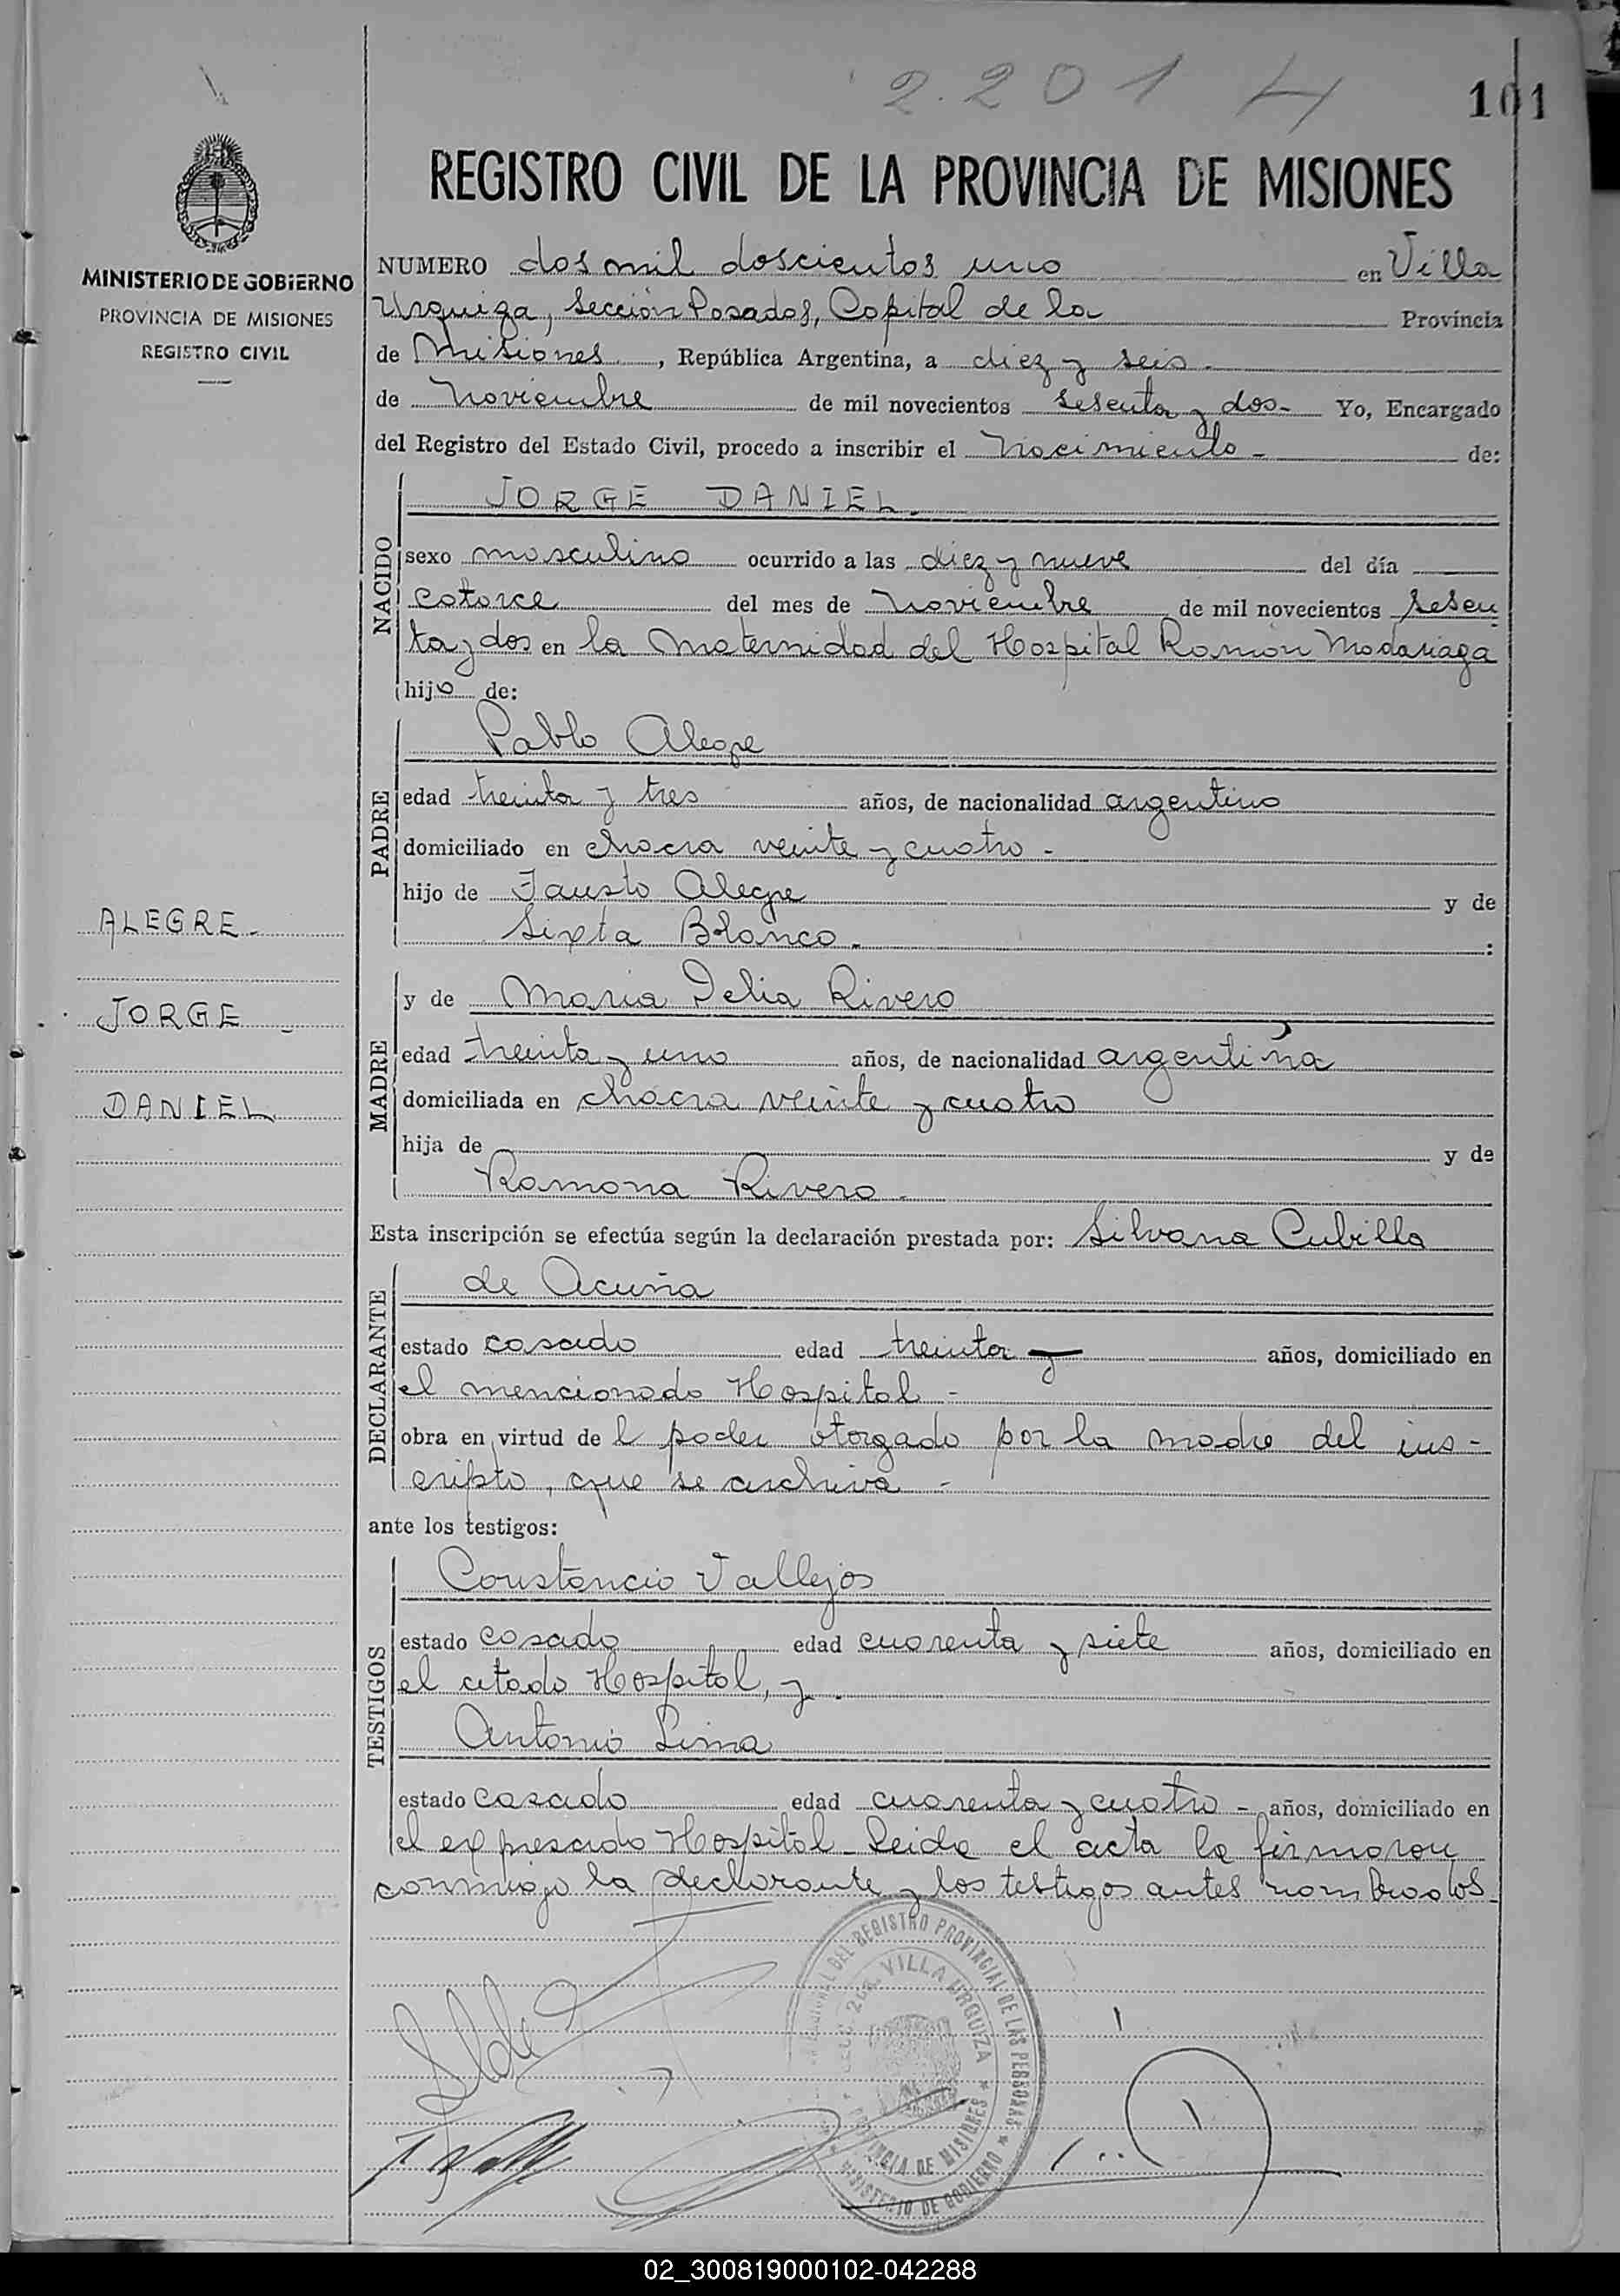 2.201
101
REGISTRO CIVIL DE LA PROVINCIA DE MISIONES
MINISTERIO DE GOBIERNO
PROVINCIA DE MISIONES
REGISTRO CIVIL
NUMERO dos mil doscientos uno en Villa
Urquiza, Sección Posadas, Capital de la Provincia
de Misiones, República Argentina, a diez y seis -
de Noviembre de mil novecientos sesenta y dos- Yo, Encargado
del Registro del Estado Civil, procedo a inscribir el Nacimiento - de:
NACIDO
JORGE DANIEL.
sexo masculino ocurrido a las diez y nueve del día
catorce del mes de Noviembre de mil novecientos sesen
ta y dos en la Maternidad del Hospital Ramón Madariaga
hijo de:
PADRE
Pablo Alegre
edad treinta y tres años, de nacionalidad argentino
domiciliado en chacra veinte y cuatro -
hijo de Fausto Alegre y de
Sixta Blanco. :
ALEGRE -
JORGE -
DANIEL
MADRE
y de Maria Delia Rivero
edad treinta y uno años, de nacionalidad argentina
domiciliada en chacra veinte y cuatro
hija de y de
Ramona Rivero -
Esta inscripción se efectúa según la declaración prestada por: Silvana Cubilla
DECLARANTE
de Acuña
estado casado edad treinta y años, domiciliado en
el mencionado Hospital -
obra en virtud de l poder otorgado por la madre del ins-
cripto, que se archiva -
ante los testigos:
TESTIGOS
Constancio Vallejos
estado casado edad cuarenta y siete años, domiciliado en
el citado Hospital, y.
Antonio Lima
estado casado edad cuarenta y cuatro - años, domiciliado en
el expresado Hospital - Leida el acta la firmaron
conmigo la declarante y los testigos antes nombrados.
DEL REGISTRO PROVINCIAL DE LAS PERSONAS
VILLA URQUIZA
PROVINCIA DE MISIONES
MINISTERIO DE GOBIERNO
02_300819000102-042288